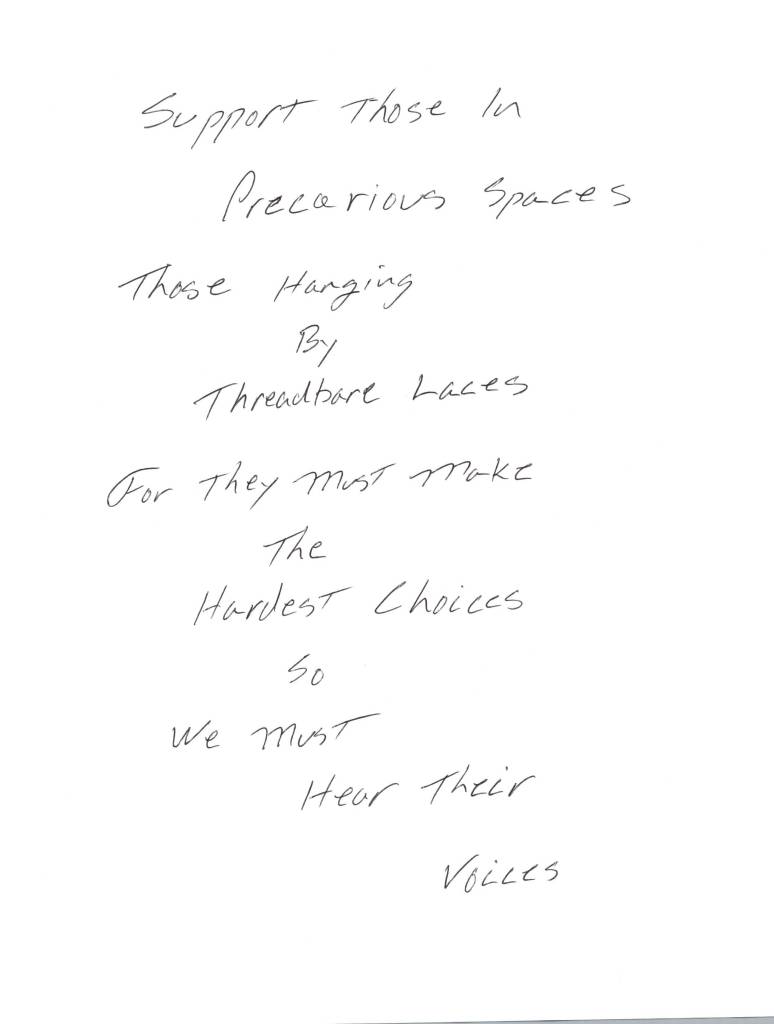 Support Those In
Precarious Spaces
Those Hanging
By
Threadbare Laces
For They Must Make
The
Hardest Choices
So
We Must
Hear Their
Voices